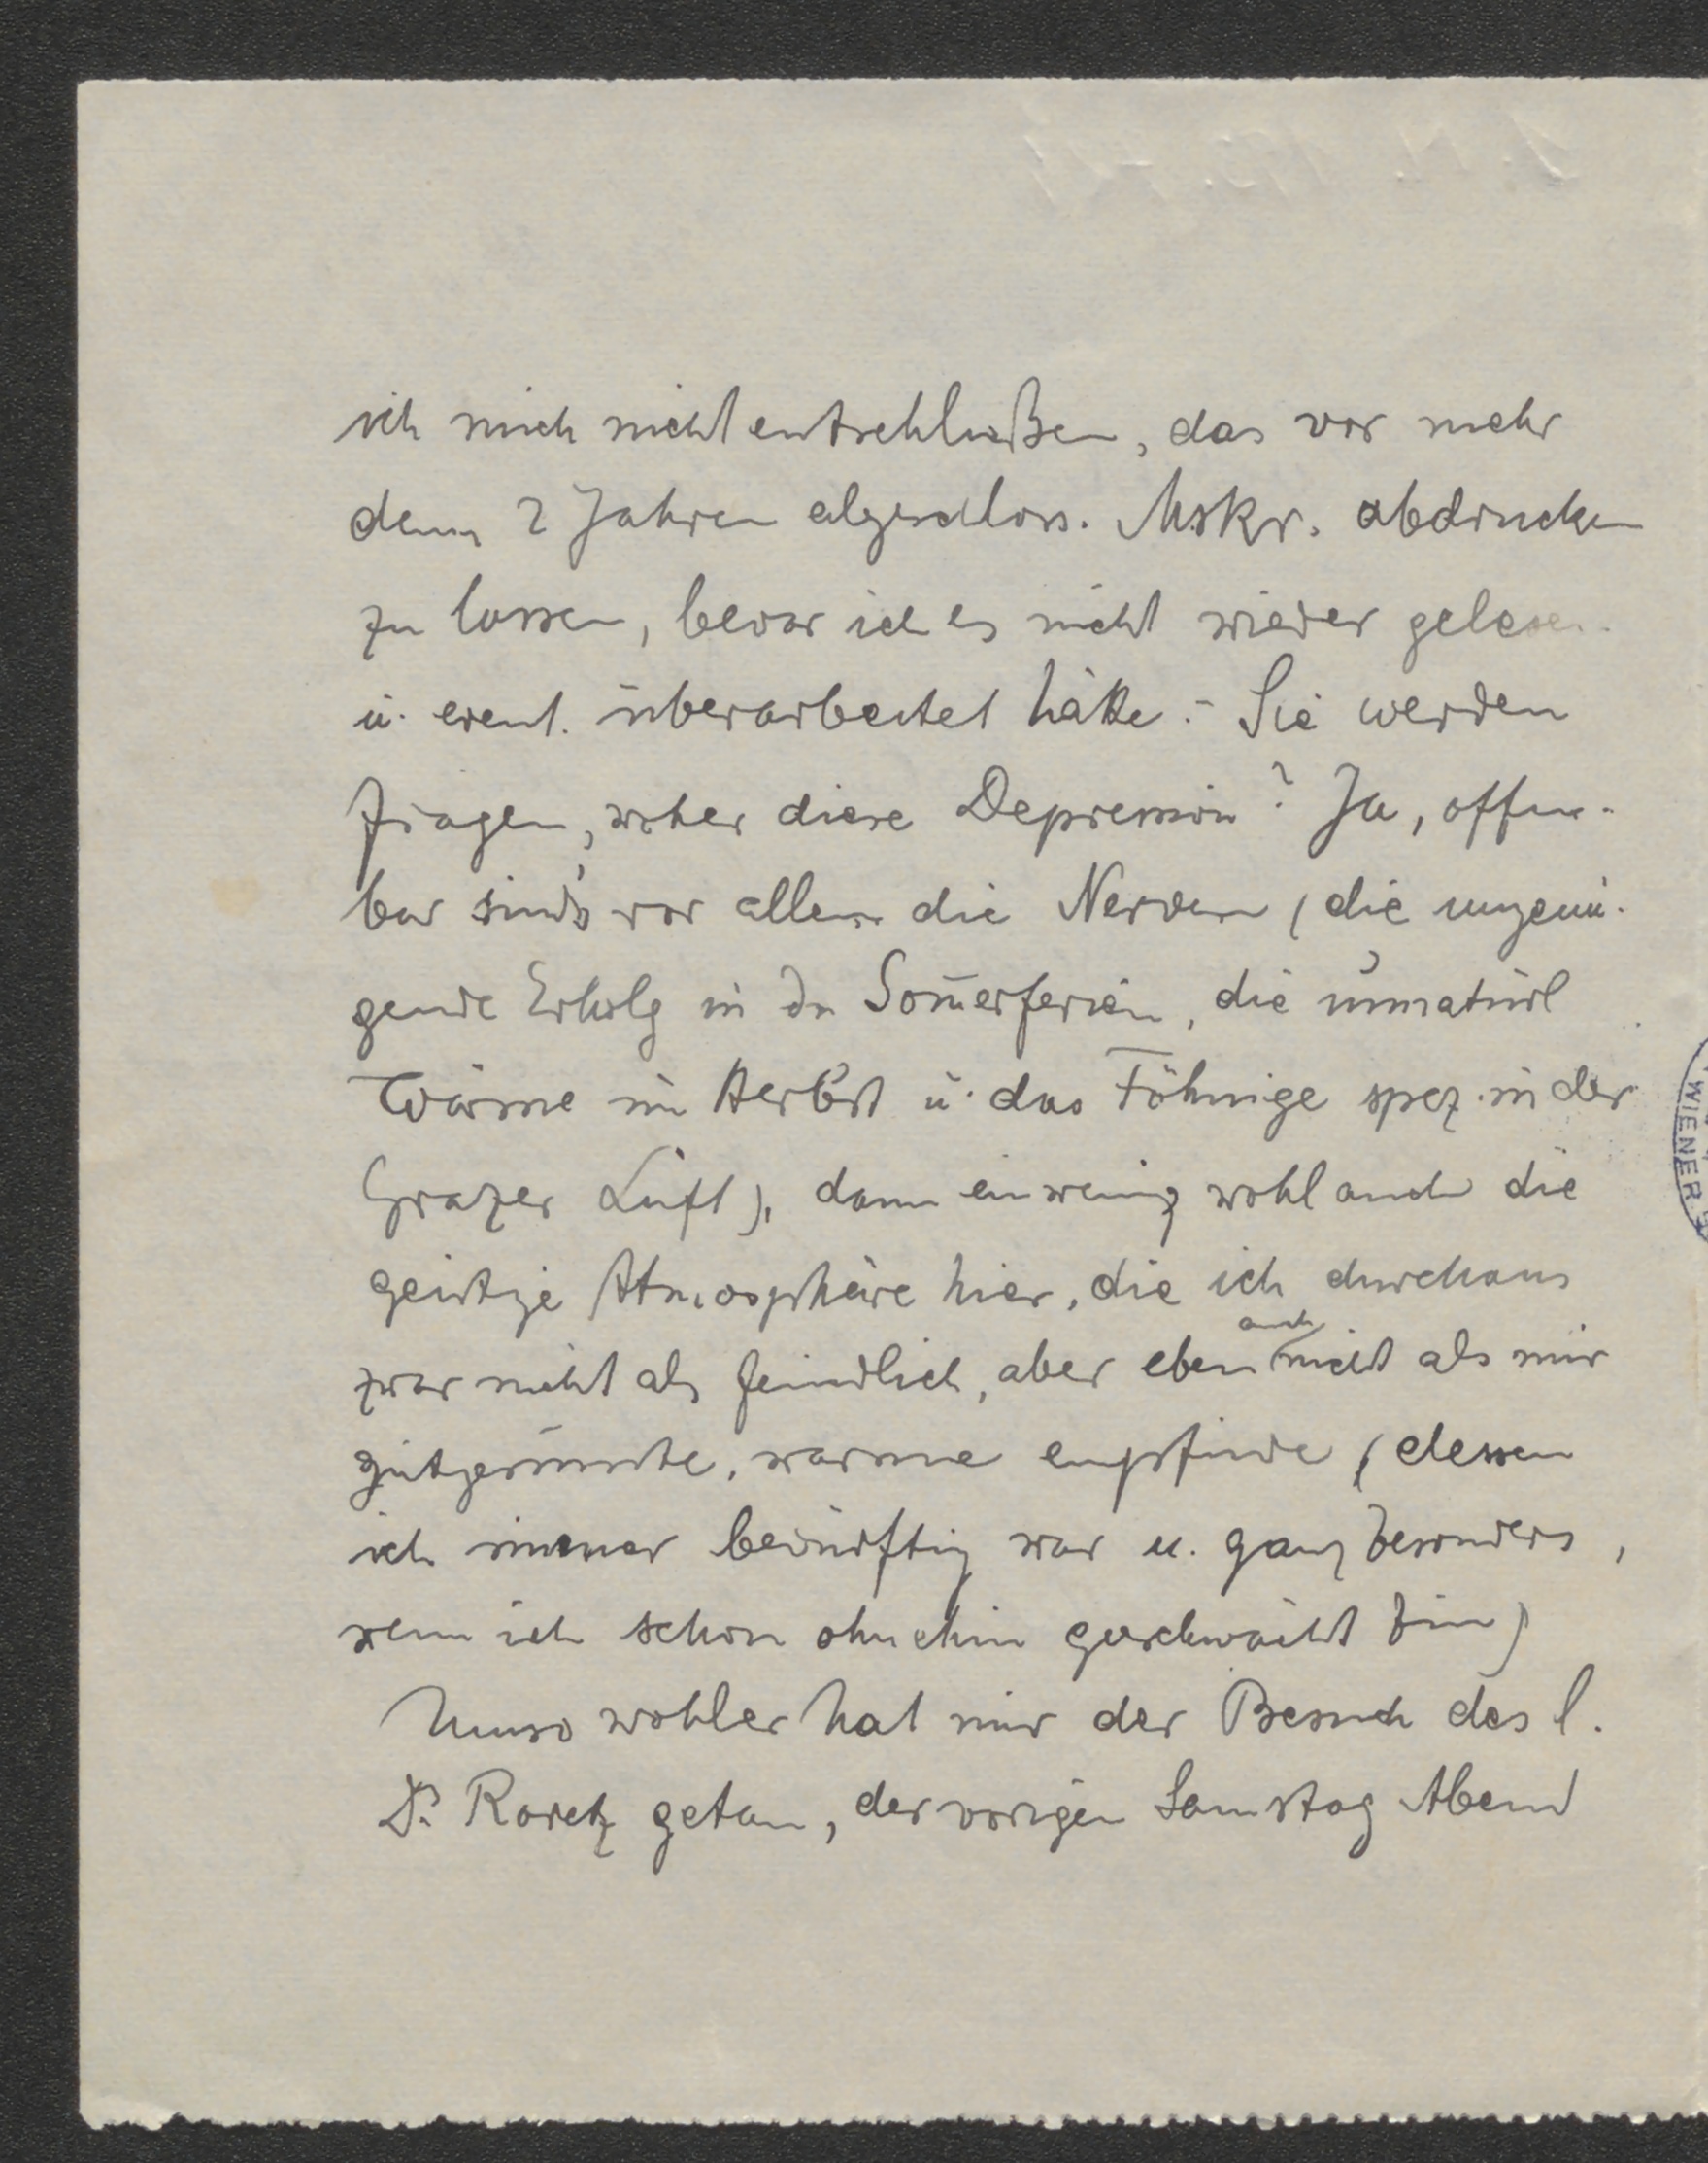 ich mich nicht entschließen, das vor mehr
denn 2 Jahren abgeschloss. Mskr. abdrucken
zu lassen, bevor ich es nicht wieder gelesen
u. event. überarbeitet hätte. - Sie werden
fragen, woher diese Depression? Ja, offen-
bar sind's vor allem die Nerven (die ungenü-
gende Erholg in den Som̄erferien, die unnatürl
Wärme im Herbst u. das Föhnige spez. in der
Grazer Luft), dann ein wenig wohl auch die
geistige Atmosphäre hier, die ich durchaus
zwar nicht als feindlich, aber eben auch nicht als mir
gutgesinnte, warme empfinde (dessen
ich immer bedürftig war u. ganz besonders,
wenn ich schon ohnehin geschwächt bin)
Umso wohler hat mir der Besuch des l.
Dr. Roretz getan, der vorigen Samstag Abend
WIENER